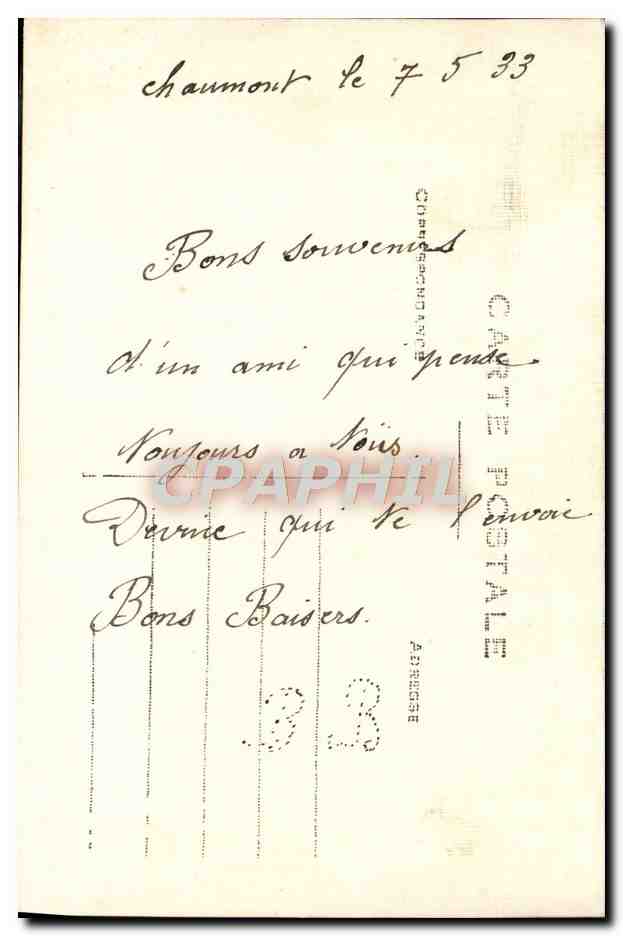 chaumont le 7 5 33
Bons souvenirs
d'un ami qui pense
Toujours a Toi
CPAPHIL
qui te l'envoie
Bons Baisers.
B B
CORRESPONDANCE
CARTE POSTALE
ADRESSE